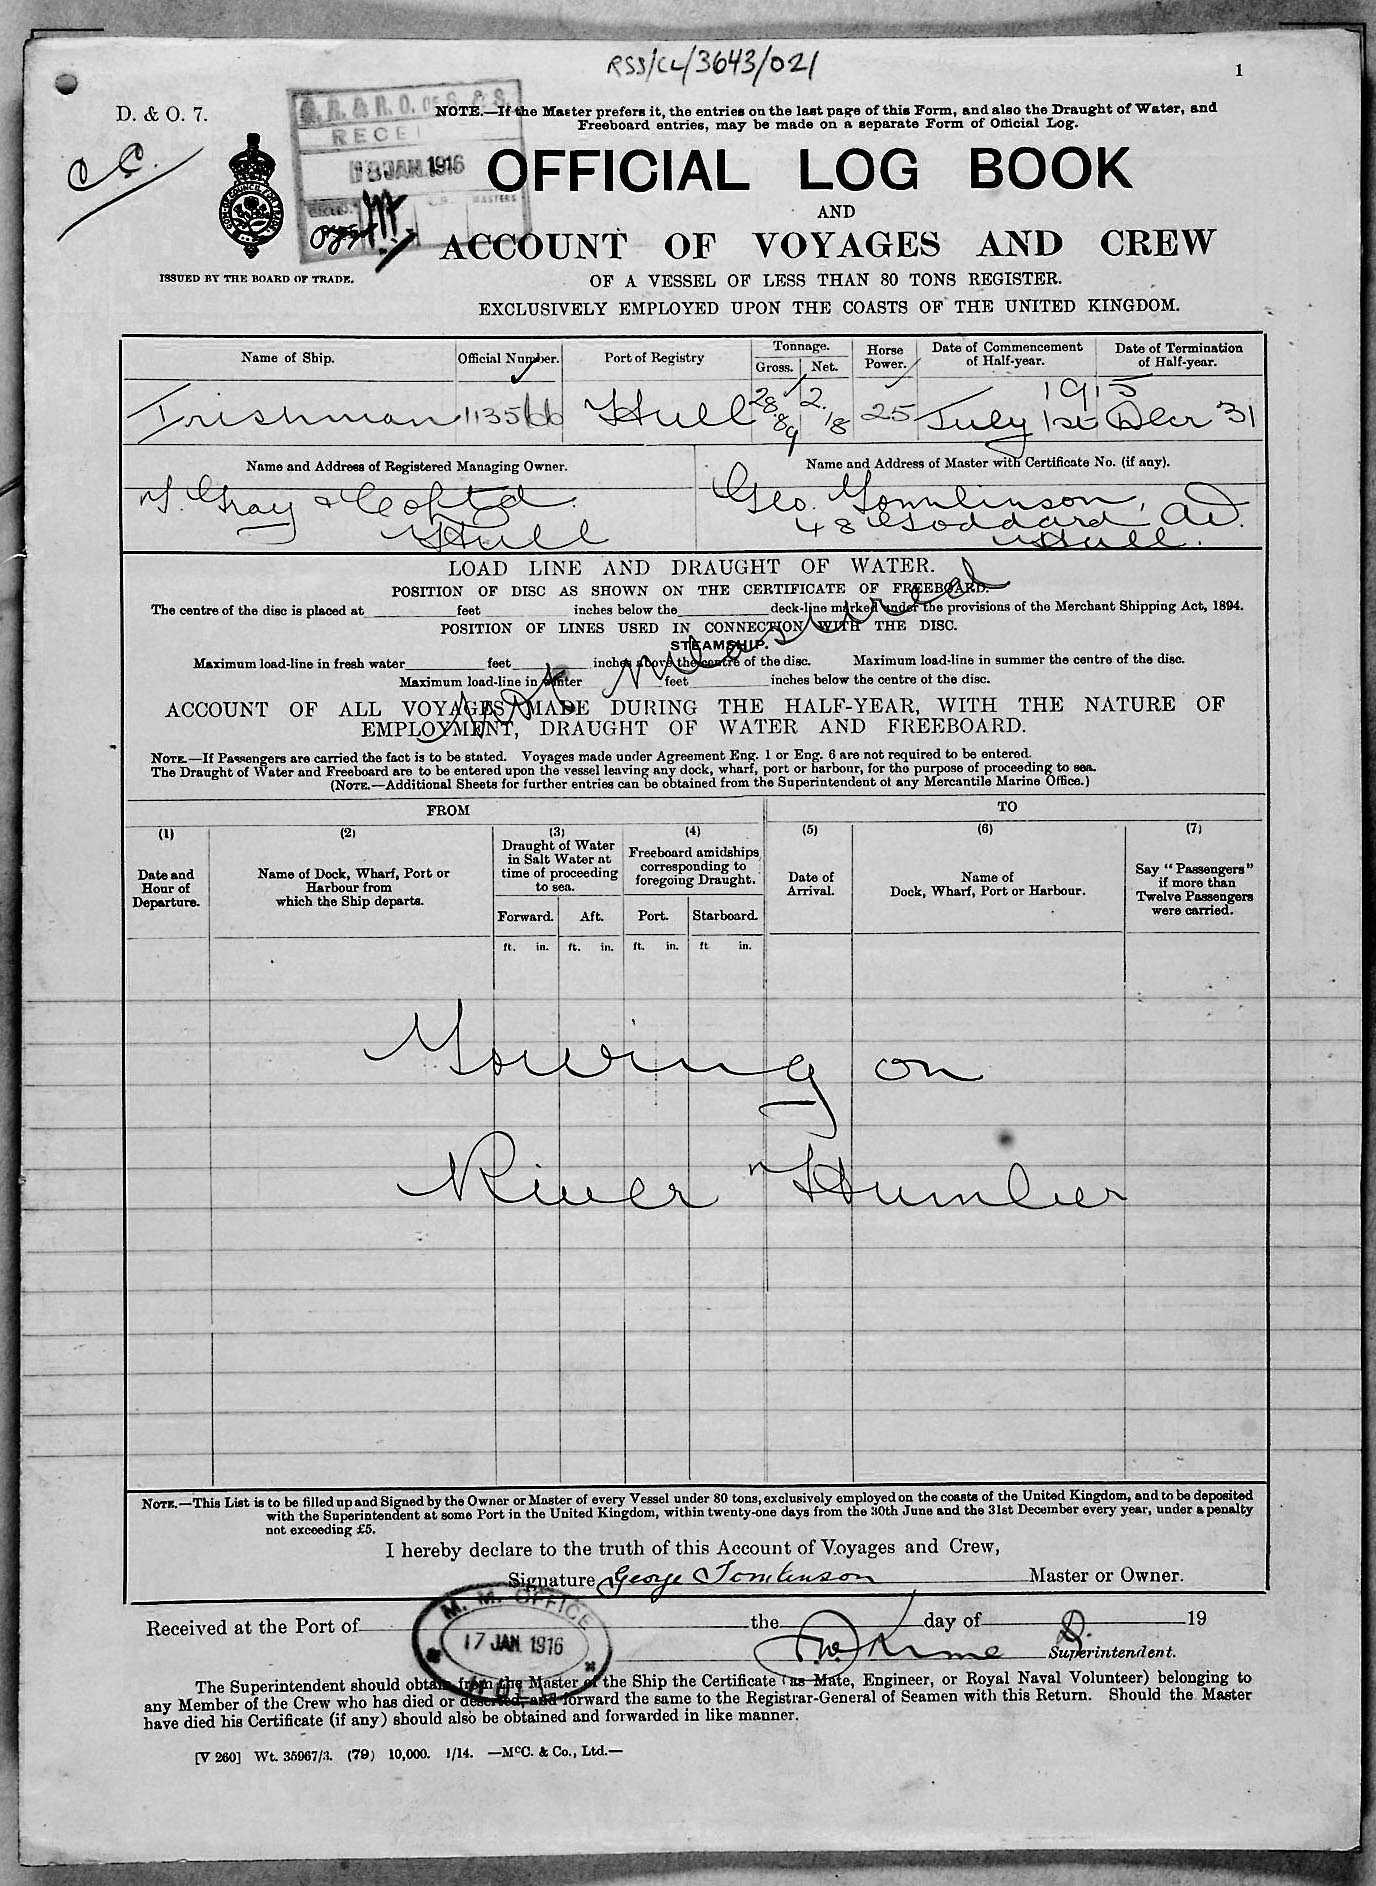 RSS/CL/3643/021
1
D. & O. 7.
C.C.
RECEI
18 JAN. 1916
MASTERS
NOTE.—If the Master prefers it, the entries on the last page of this Form, and also the Draught of Water, and
Freeboard entries, may be made on a separate Form of Official Log.
OFFICIAL LOG BOOK
AND
ACCOUNT OF VOYAGES AND CREW
ISSUED BY THE BOARD OF TRADE.
OF A VESSEL OF LESS THAN 80 TONS REGISTER.
EXCLUSIVELY EMPLOYED UPON THE COASTS OF THE UNITED KINGDOM.
Name of Ship. Official Number. Port of Registry Tonnage. Gross. Net. Horse Power. Date of Commencement of Half-year. Date of Termination of Half-year.
1915
Irishman 113566 Hull 28.89 2.18 25 July 1st Decr 31
Name and Address of Registered Managing Owner. Name and Address of Master with Certificate No. (if any).
T. Gray & Co Ltd. Geo. Tomlinson,
Hull 48 Goddard Av.
Hull.
LOAD LINE AND DRAUGHT OF WATER.
POSITION OF DISC AS SHOWN ON THE CERTIFICATE OF FREEBOARD.
The centre of the disc is placed at feet inches below the deck-line marked under the provisions of the Merchant Shipping Act, 1894.
POSITION OF LINES USED IN CONNECTION WITH THE DISC.
STEAMSHIP.
Maximum load-line in fresh water feet inches above the centre of the disc. Maximum load-line in summer the centre of the disc.
Maximum load-line in winter feet inches below the centre of the disc.
Not measured
ACCOUNT OF ALL VOYAGES MADE DURING THE HALF-YEAR, WITH THE NATURE OF
EMPLOYMENT, DRAUGHT OF WATER AND FREEBOARD.
NOTE.—If Passengers are carried the fact is to be stated. Voyages made under Agreement Eng. 1 or Eng. 6 are not required to be entered.
The Draught of Water and Freeboard are to be entered upon the vessel leaving any dock, wharf, port or harbour, for the purpose of proceeding to sea.
(NOTE.—Additional Sheets for further entries can be obtained from the Superintendent of any Mercantile Marine Office.)
FROM TO
(1) (2) (3) (4) (5) (6) (7)
Date and Hour of Departure.
Name of Dock, Wharf, Port or Harbour from which the Ship departs.
Draught of Water in Salt Water at time of proceeding to sea.
Freeboard amidships corresponding to foregoing Draught.
Date of Arrival.
Name of Dock, Wharf, Port or Harbour.
Say "Passengers" if more than Twelve Passengers were carried.
Forward. Aft. Port. Starboard.
ft. in. ft. in. ft. in. ft in.
Towing on
River Humber
NOTE.—This List is to be filled up and Signed by the Owner or Master of every Vessel under 80 tons, exclusively employed on the coasts of the United Kingdom, and to be deposited
with the Superintendent at some Port in the United Kingdom, within twenty-one days from the 30th June and the 31st December every year, under a penalty
not exceeding £5.
I hereby declare to the truth of this Account of Voyages and Crew,
Signature George Tomlinson Master or Owner.
Received at the Port of the day of 19
M. M. OFFICE
17 JAN 1916
Superintendent.
The Superintendent should obtain from the Master of the Ship the Certificate (as Mate, Engineer, or Royal Naval Volunteer) belonging to
any Member of the Crew who has died or deserted, and forward the same to the Registrar-General of Seamen with this Return. Should the Master
have died his Certificate (if any) should also be obtained and forwarded in like manner.
[V 260] Wt. 35967/3. (79) 10,000. 1/14. —McC. & Co., Ltd.—